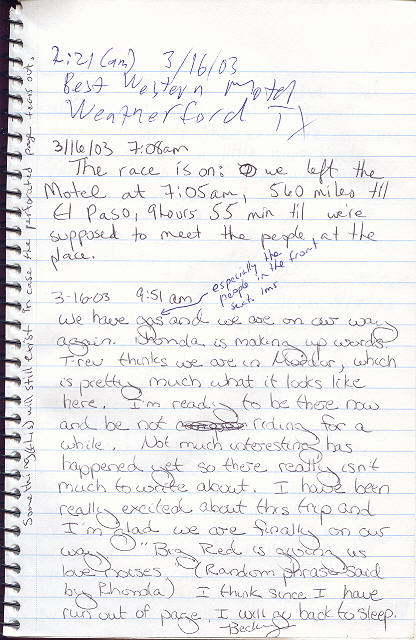 2:21 (am) 3/16/03
Best Western Motel
Weatherford TX
3/16/03 7:08am
The race is on: we left the
Motel at 7:05am, 560 miles til
El Paso, 9 hours 55 min til we're
supposed to meet the people at the
place.
3-16-03 9:51 am
especially the
people in the front
seat.
We have gas and we are on our way
again. Rhonda is making up words
T-rev thinks we are in Mordor, which
is pretty much what it looks like
here. I'm ready to be there now
and be not riding for a
while. Not much interesting has
happened yet so there really isn't
much to write about. I have been
really excited about this trip and
I'm glad we are finally on our
way. "Big Red is giving us
love horses." (Random phrase said
by Rhonda) I think since I have
run out of page, I will go back to sleep.
-Becky
Something (this) will still exist in case the perforated page tears out.